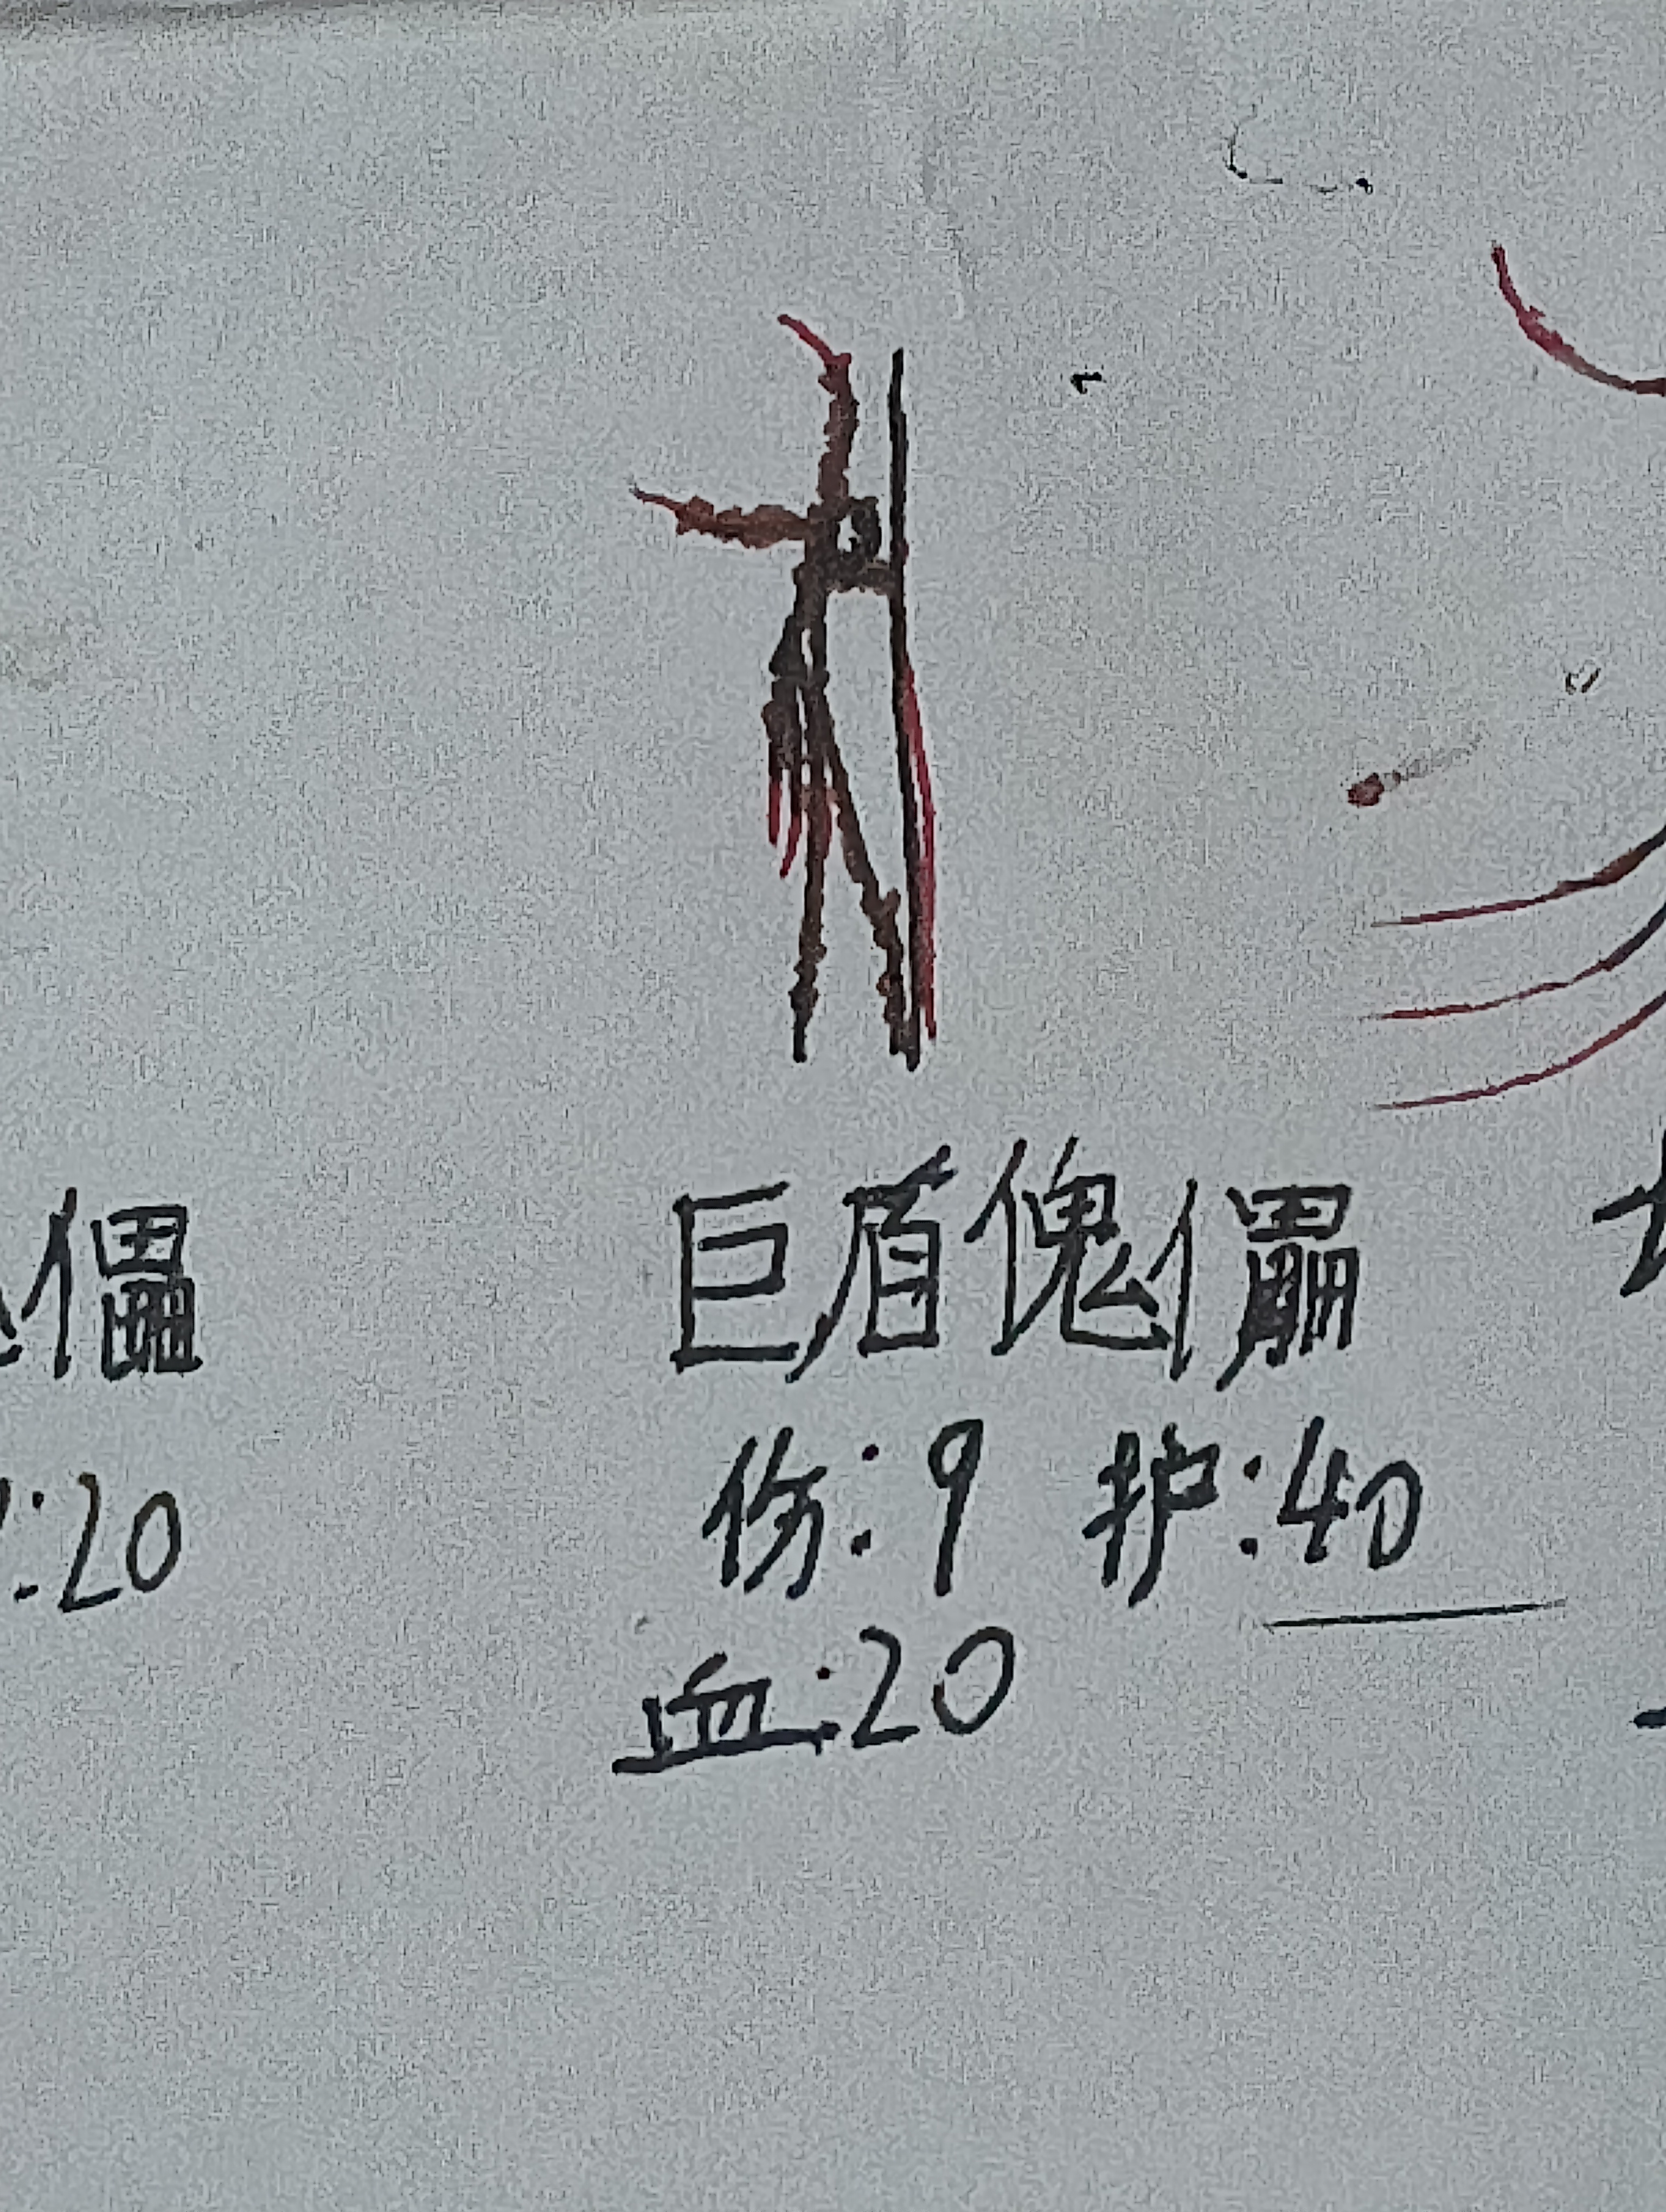 儡
巨盾傀儡
:20
伤:9 护:40
血:20